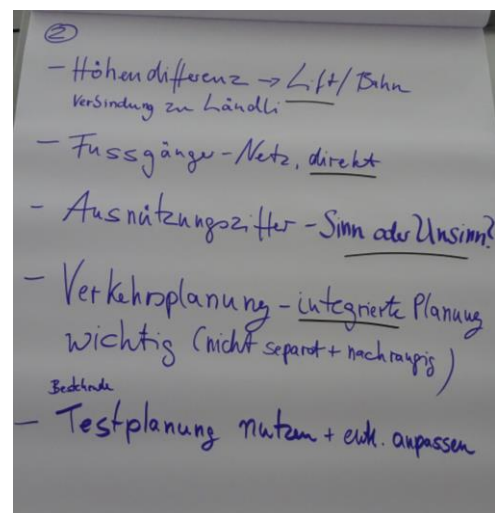 ②
- Höhendifferenz → Lift/Bahn
Verbindung zu Ländli
- Fussgänger-Netz, direkt
- Ausnützungsziffer - Sinn oder Unsinn?
- Verkehrsplanung - integrierte Planung
wichtig (nicht separat + nachrangig)
Bestehende
- Testplanung nutzen + evtl. anpassen